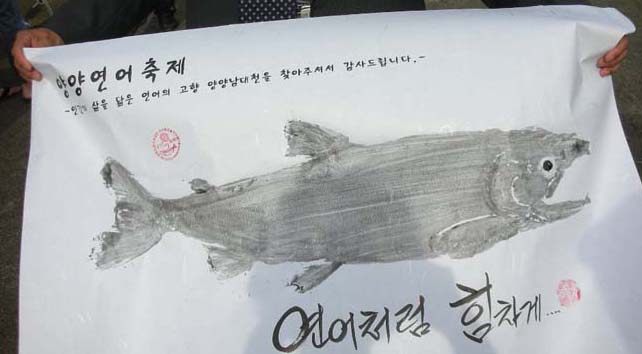 양양연어축제
-인간의 삶을 닮은 연어의 고향 양양남대천을 찾아주셔서 감사드립니다.-
연어처럼 힘차게....